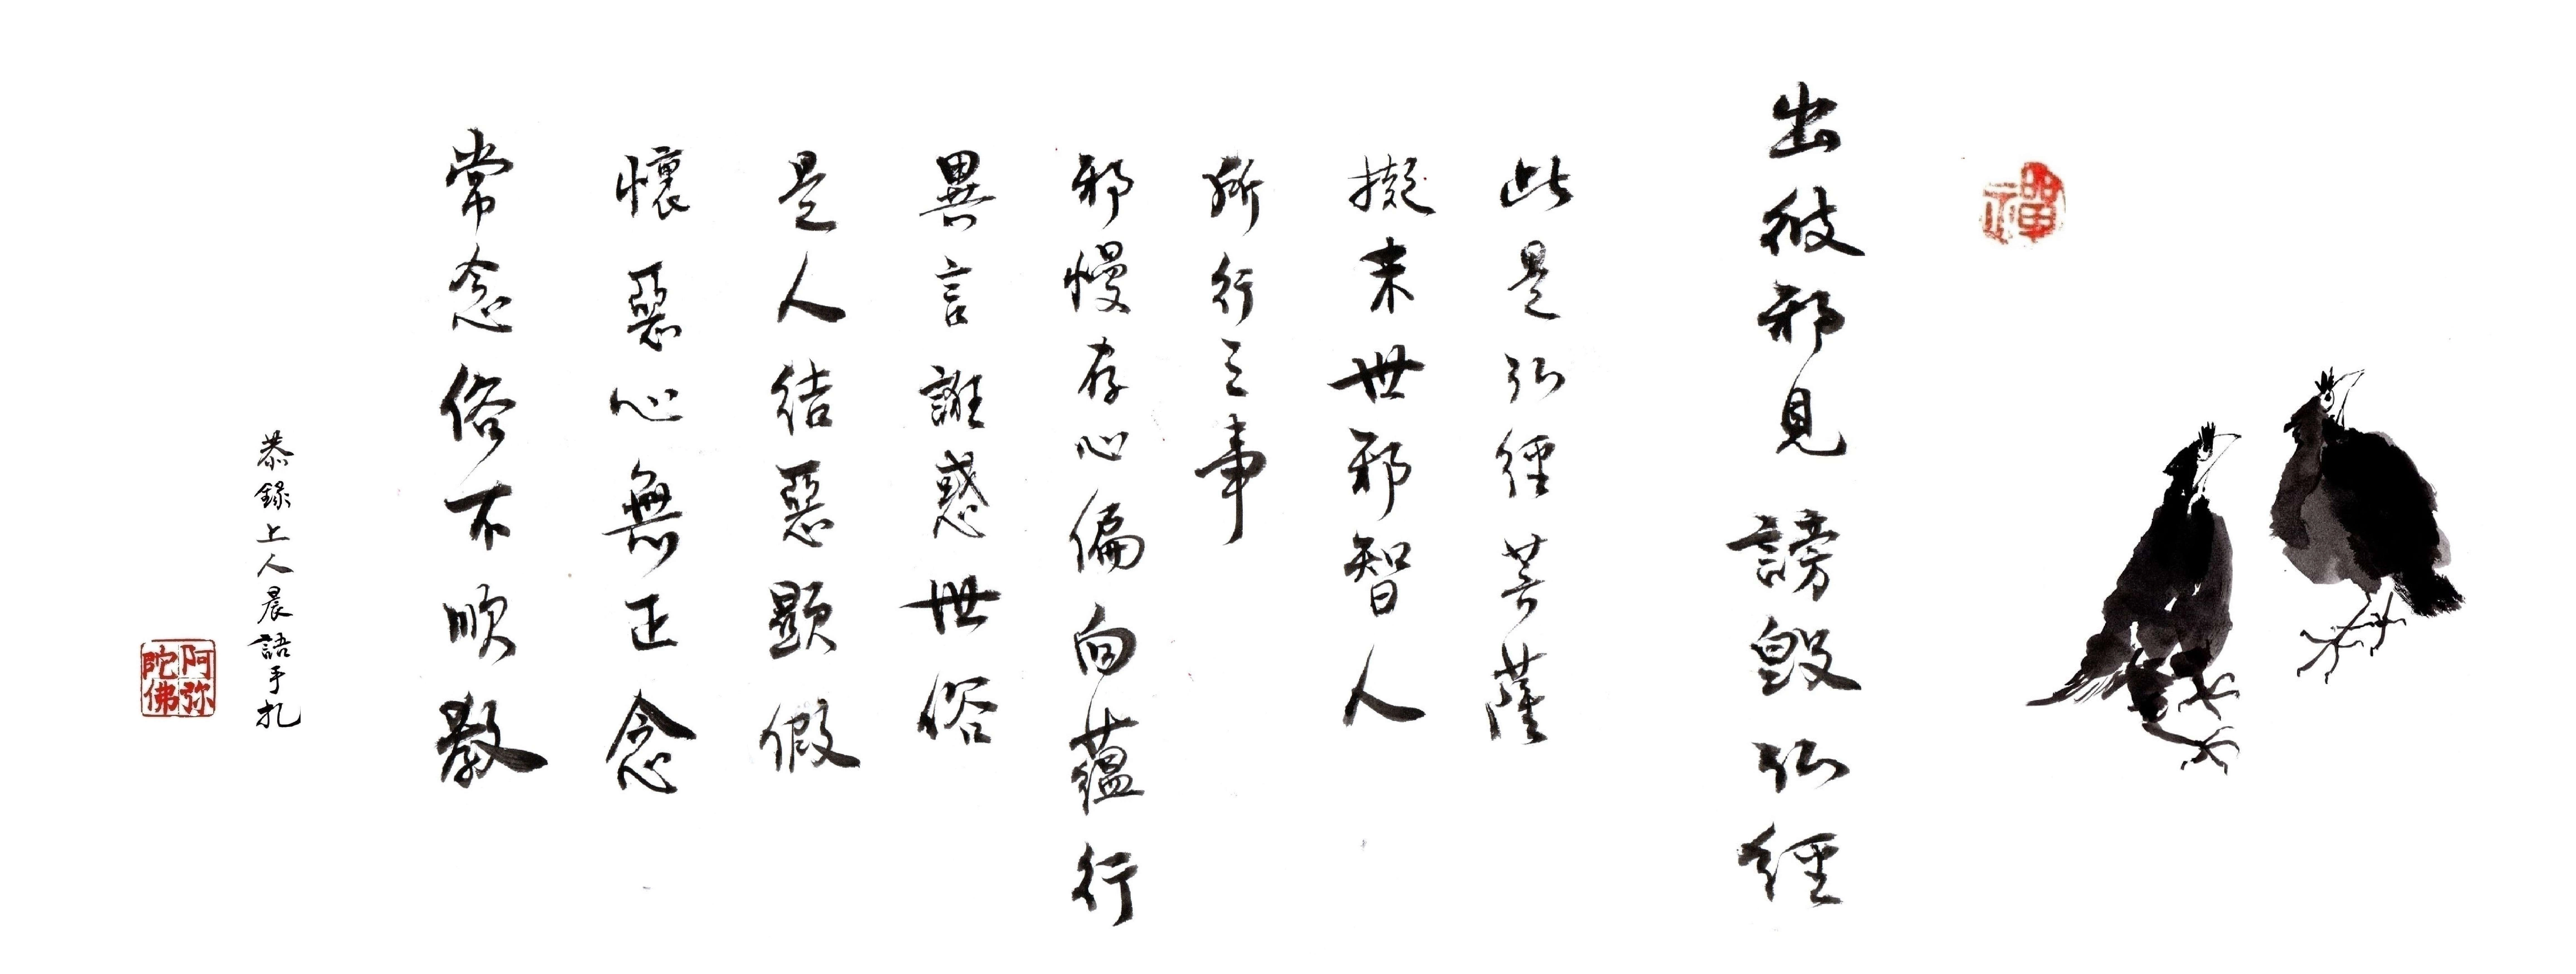 禪
出彼邪見謗毀弘經
此是弘經菩薩
擬末世邪智人
所行之事
邪慢存心偏向蘊行
異言誑惑世俗
是人結惡顯假
懷惡心無正念
常念俗不順教
恭錄上人晨語手扎
阿弥陀佛